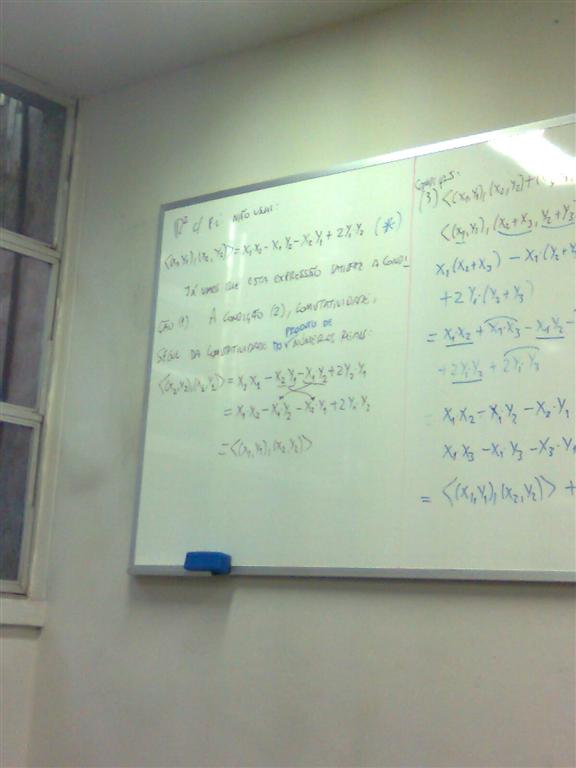 ℝ² c/ P.i NÃO USUAL:
<(x₁,y₁),(x₂,y₂)> = x₁x₂ - x₁y₂ - x₂y₁ + 2y₁y₂ (*)
JÁ VIMOS QUE ESTA EXPRESSÃO SATISFAZ A CONDI-
ÇÃO (1). A CONDIÇÃO (2), COMUTATIVIDADE,
SEGUE DA COMUTATIVIDADE DO PRODUTO DE NÚMEROS REAIS:
<(x₂,y₂),(x₁,y₁)> = x₂x₁ - x₂y₁ - x₁y₂ + 2y₂y₁
= x₁x₂ - x₁y₂ - x₂y₁ + 2y₁y₂
= <(x₁,y₁),(x₂,y₂)>
(3) <(x₁,y₁),(x₂,y₂)+
<(x₁,y₁),(x₂+x₃, y₂+y₃
x₁(x₂+x₃) - x₁(y₂+y
+2y₁(y₂+y₃)
= x₁x₂ + x₁x₃ - x₁y₂ -
+2y₁y₂ + 2y₁y₃
= x₁x₂ - x₁y₂ - x₂y₁
x₁x₃ - x₁y₃ - x₃y₁
= <(x₁,y₁),(x₂,y₂)> +